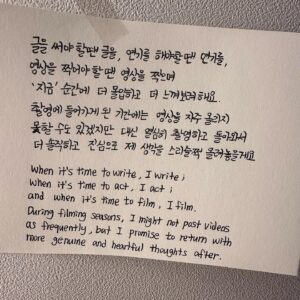 글을 써야 할 땐 글을, 연기를 해야할 땐 연기를,
영상을 찍어야 할 땐 영상을 찍으며
'지금' 순간에 더 몰입하고 더 느껴보려해요.
촬영에 들어가게 된 기간에는 영상을 자주 올리지
못할 수도 있겠지만 대신 열심히 촬영하고 돌아와서
더 솔직하고 진심으로 제 생각을 스리슬쩍 올려놓을게요
When it's time to write, I write;
When it's time to act, I act;
and when it's time to film, I film.
During filming seasons, I might not post videos
as frequently, but I promise to return with
more genuine and heartful thoughts after.